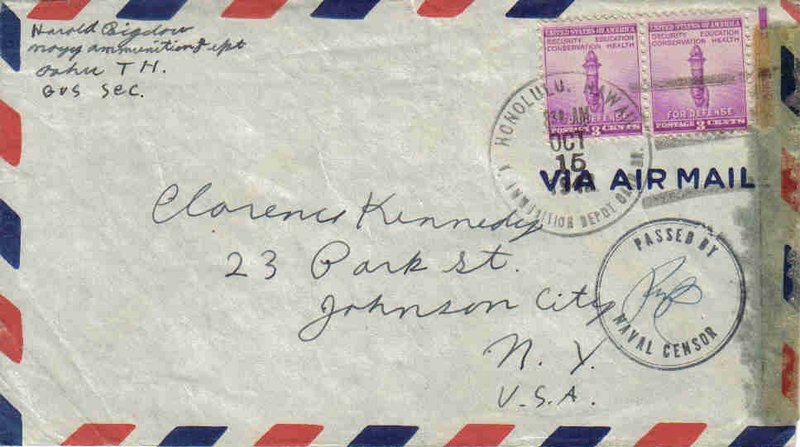 Harold Bigelow
navy ammunition dept
Oahu T H.
GUS SEC.
UNITED STATES OF AMERICA
SECURITY EDUCATION
CONSERVATION HEALTH
FOR DEFENSE
POSTAGE 3 CENTS
UNITED STATES OF AMERICA
SECURITY EDUCATION
CONSERVATION HEALTH
FOR DEFENSE
POSTAGE 3 CENTS
HONOLULU, HAWAII
AM
OCT
15
AMMUNITION DEPOT
VIA AIR MAIL
Clarence Kennedy
23 Park St.
Johnson City
N. Y.
U.S.A.
PASSED BY
NAVAL CENSOR